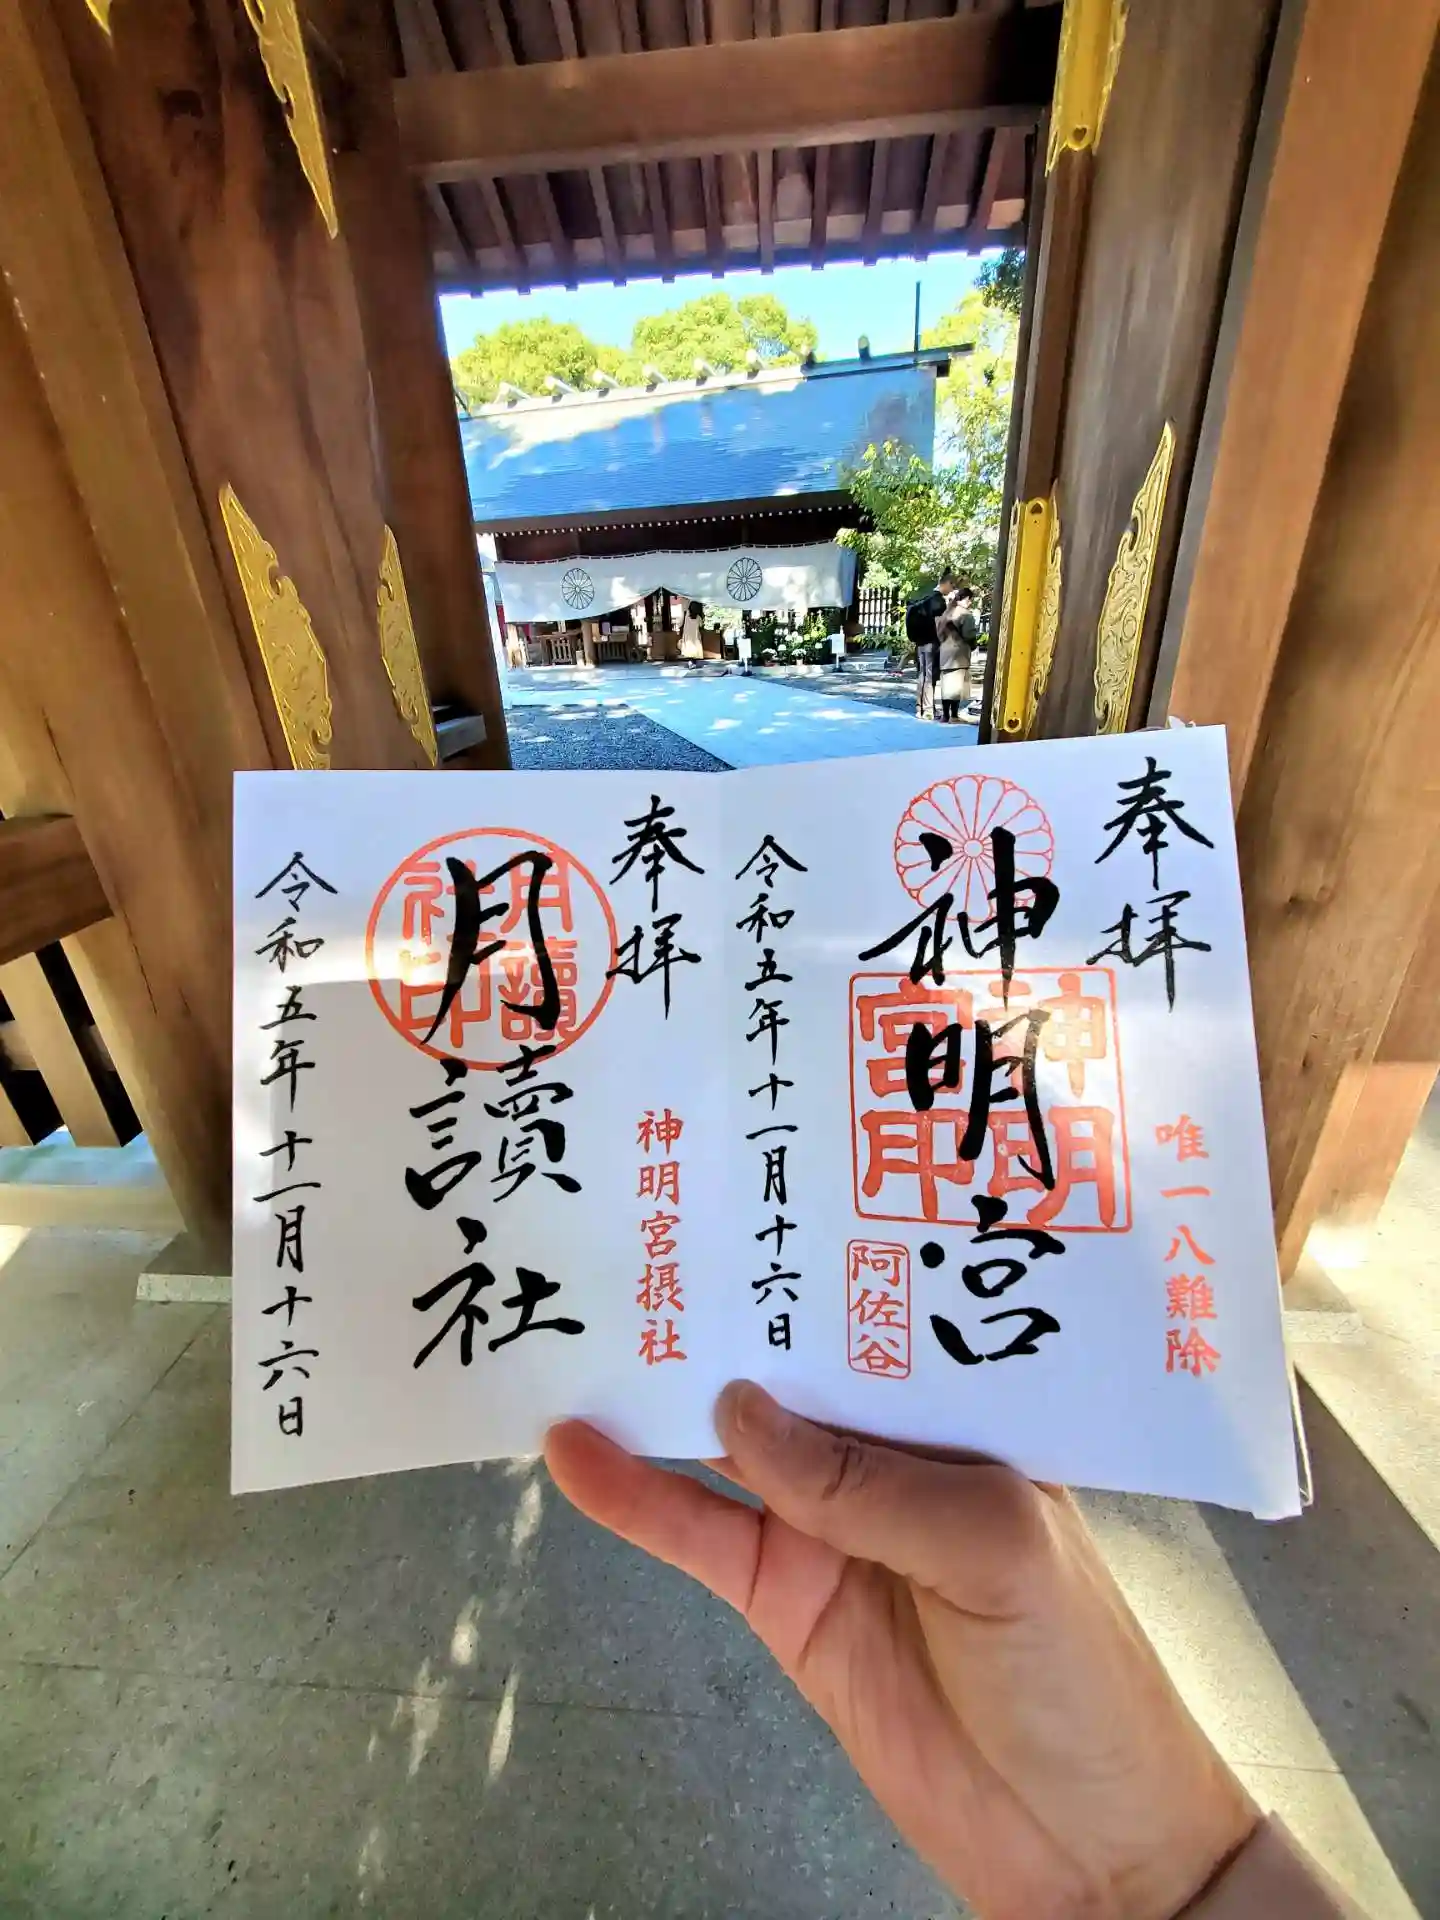 奉拝
唯一八難除
神明宮
神明宮印
阿佐谷
令和五年十一月十六日
奉拝
神明宮摂社
月讀社
月讀社印
令和五年十一月十六日